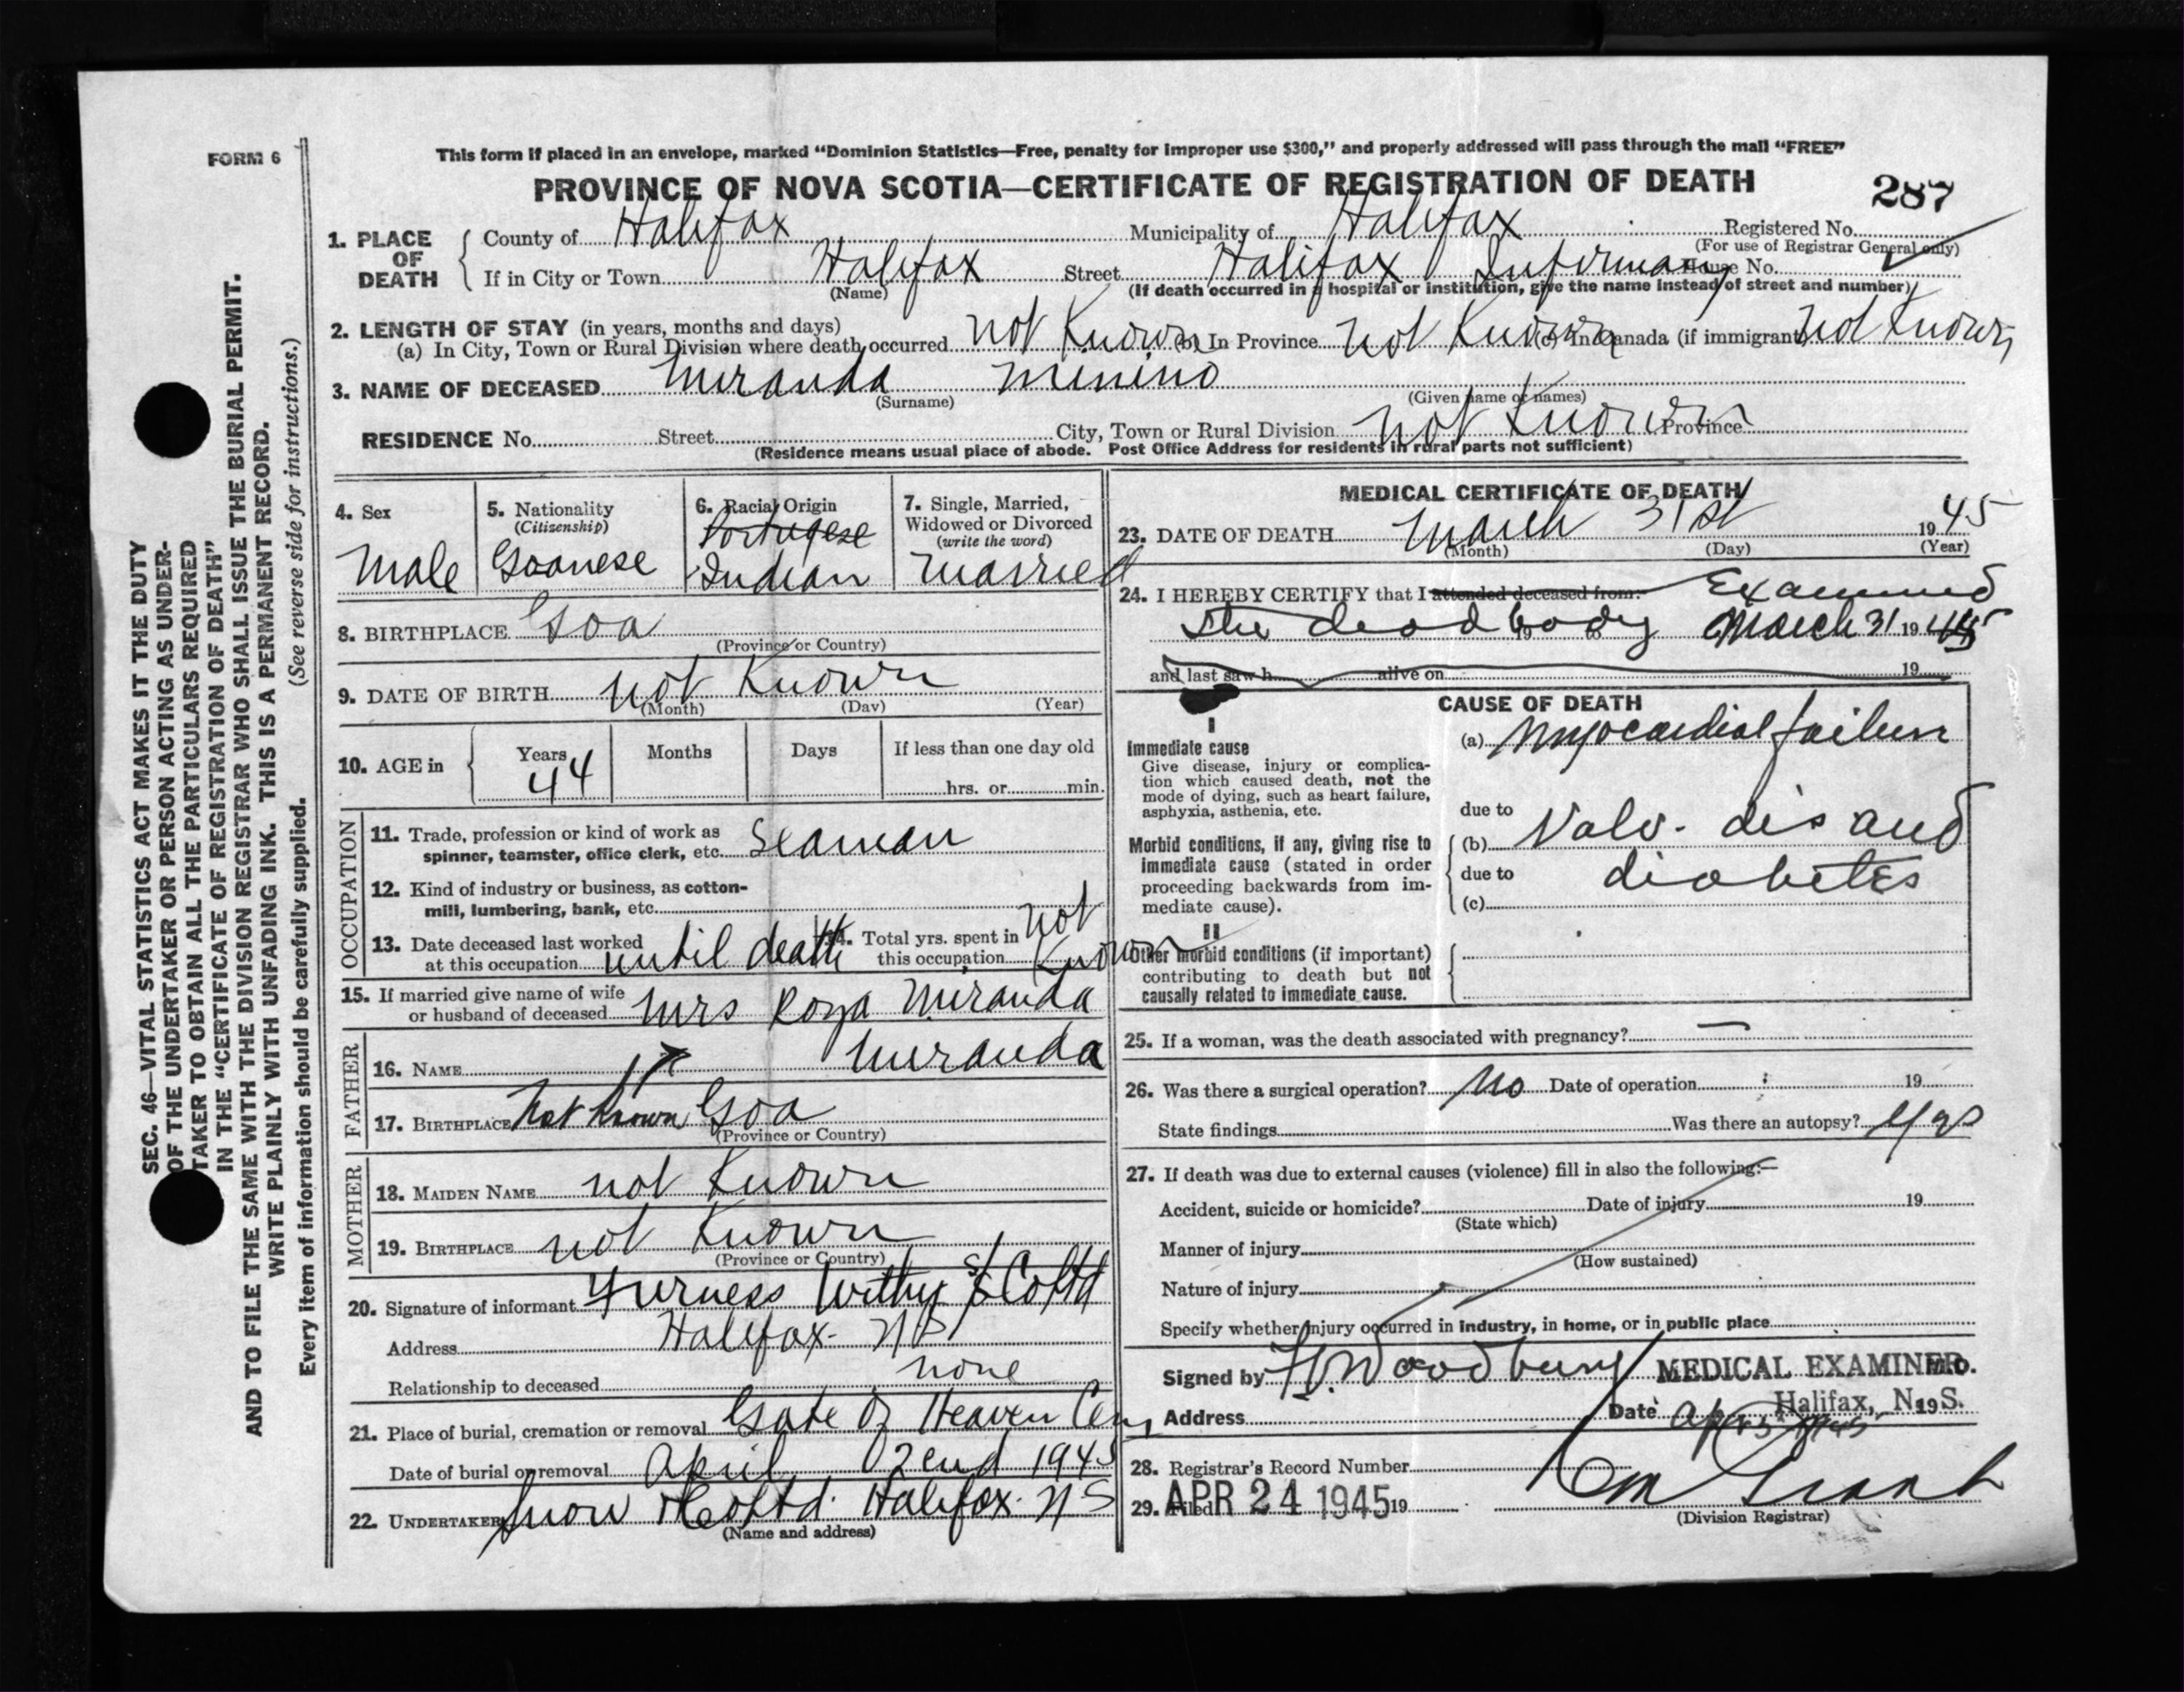 FORM 6
This form if placed in an envelope, marked “Dominion Statistics—Free, penalty for improper use $300,” and properly addressed will pass through the mail “FREE”
PROVINCE OF NOVA SCOTIA—CERTIFICATE OF REGISTRATION OF DEATH
287
1. PLACE OF DEATH
County of Halifax Municipality of Halifax Registered No.
(For use of Registrar General only)
If in City or Town Halifax Street Halifax Infirmary House No.
(Name) (If death occurred in a hospital or institution, give the name instead of street and number)
2. LENGTH OF STAY (in years, months and days)
(a) In City, Town or Rural Division where death occurred not Known (b) In Province not Known (c) In Canada (if immigrant) not Known
3. NAME OF DECEASED Miranda Minino
(Surname) (Given name or names)
RESIDENCE No. Street City, Town or Rural Division not Known Province
(Residence means usual place of abode. Post Office Address for residents in rural parts not sufficient)
4. Sex
Male
5. Nationality
(Citizenship)
Goanese
6. Racial Origin
Portugese
Indian
7. Single, Married,
Widowed or Divorced
(write the word)
Married
8. BIRTHPLACE Goa
(Province or Country)
9. DATE OF BIRTH not Known
(Month) (Day) (Year)
10. AGE in
Years Months Days If less than one day old
44 hrs. or min.
OCCUPATION
11. Trade, profession or kind of work as
spinner, teamster, office clerk, etc. Seaman
12. Kind of industry or business, as cotton-
mill, lumbering, bank, etc.
13. Date deceased last worked
at this occupation until death
14. Total yrs. spent in
this occupation not Known
15. If married give name of wife
or husband of deceased Mrs Roza Miranda
FATHER
16. NAME Miranda
17. BIRTHPLACE Not known Goa
(Province or Country)
MOTHER
18. MAIDEN NAME not Known
19. BIRTHPLACE not Known
(Province or Country)
20. Signature of informant Furness Withy S/S Co Ltd
Address Halifax - NS
Relationship to deceased none
21. Place of burial, cremation or removal Gate Of Heaven Cem
Date of burial or removal April 2end 1945
22. UNDERTAKER Snow & Co Ltd. Halifax. NS
(Name and address)
MEDICAL CERTIFICATE OF DEATH
23. DATE OF DEATH March 31st 1945
(Month) (Day) (Year)
24. I HEREBY CERTIFY that I attended deceased from: Examined
the dead body 19 to March 31 1945
and last saw h alive on 19
CAUSE OF DEATH
I
Immediate cause
Give disease, injury or complica-
tion which caused death, not the
mode of dying, such as heart failure,
asphyxia, asthenia, etc.
(a) Myocardial failure
due to
Morbid conditions, if any, giving rise to
immediate cause (stated in order
proceeding backwards from im-
mediate cause).
(b) Valv. dis and
due to diabetes
(c)
II
Other morbid conditions (if important)
contributing to death but not
causally related to immediate cause.
25. If a woman, was the death associated with pregnancy? —
26. Was there a surgical operation? No Date of operation 19
State findings Was there an autopsy? Yes
27. If death was due to external causes (violence) fill in also the following:—
Accident, suicide or homicide? Date of injury 19
(State which)
Manner of injury
(How sustained)
Nature of injury
Specify whether injury occurred in industry, in home, or in public place
Signed by Woodbury MEDICAL EXAMINER M.D.
Address Halifax, N.S. Date 19
28. Registrar's Record Number
29. Filed APR 24 1945 19 Grant
(Division Registrar)
SEC. 46—VITAL STATISTICS ACT MAKES IT THE DUTY
OF THE UNDERTAKER OR PERSON ACTING AS UNDER-
TAKER TO OBTAIN ALL THE PARTICULARS REQUIRED
IN THE “CERTIFICATE OF REGISTRATION OF DEATH”
AND TO FILE THE SAME WITH THE DIVISION REGISTRAR WHO SHALL ISSUE THE BURIAL PERMIT.
WRITE PLAINLY WITH UNFADING INK. THIS IS A PERMANENT RECORD.
Every item of information should be carefully supplied. (See reverse side for instructions.)